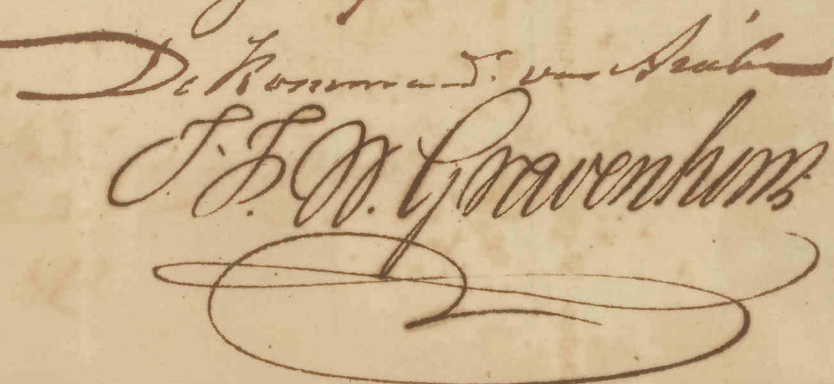 De Kommand. van Aruba
J. F. W. Gravenhorst